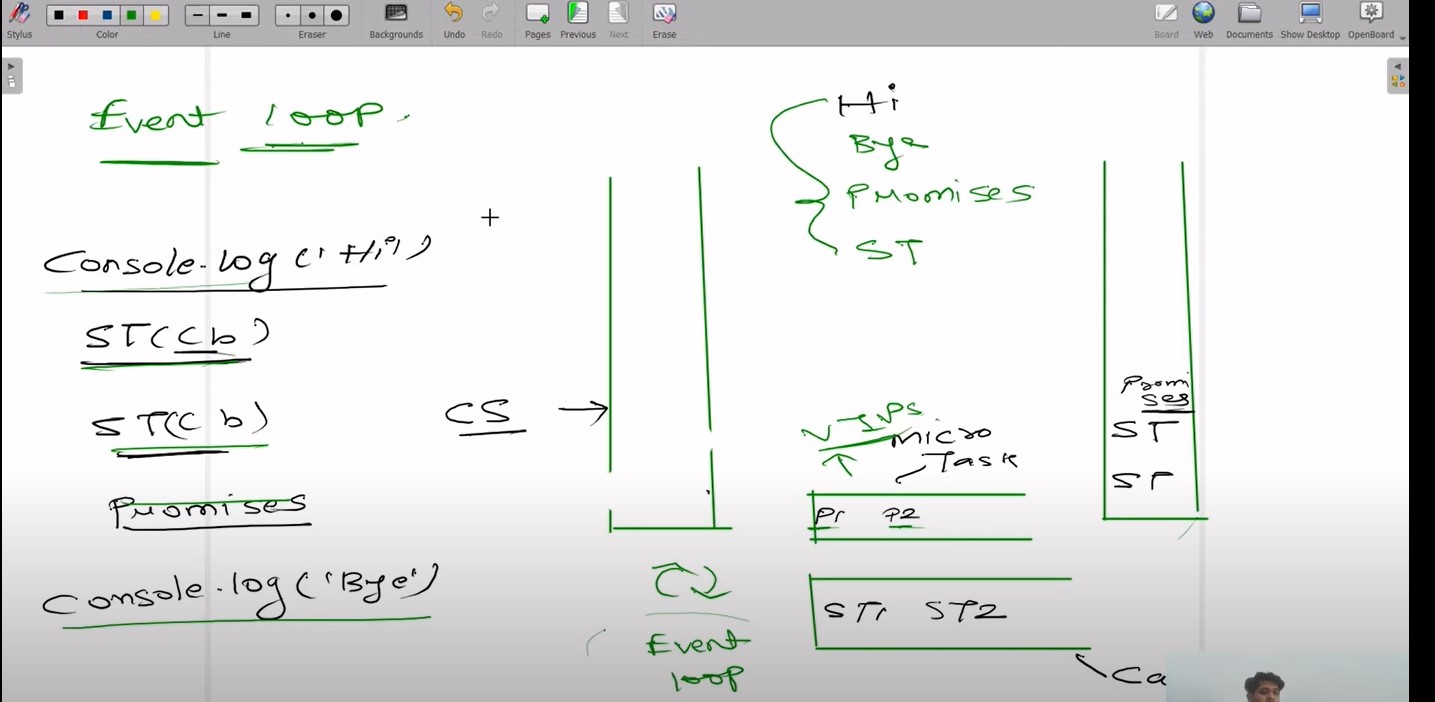 Stylus
Color
Line
Eraser
Backgrounds
Undo
Redo
Pages
Previous
Next
Erase
Board
Web
Documents
Show Desktop
OpenBoard
Event loop.
Console.log('Hi')
ST(Cb)
ST(Cb)
Promises
Console.log('Bye')
CS
Hi
Bye
Promises
ST
Micro
Task
P1 P2
ST1 ST2
Event
loop
Ca
Promi
ses
ST
ST